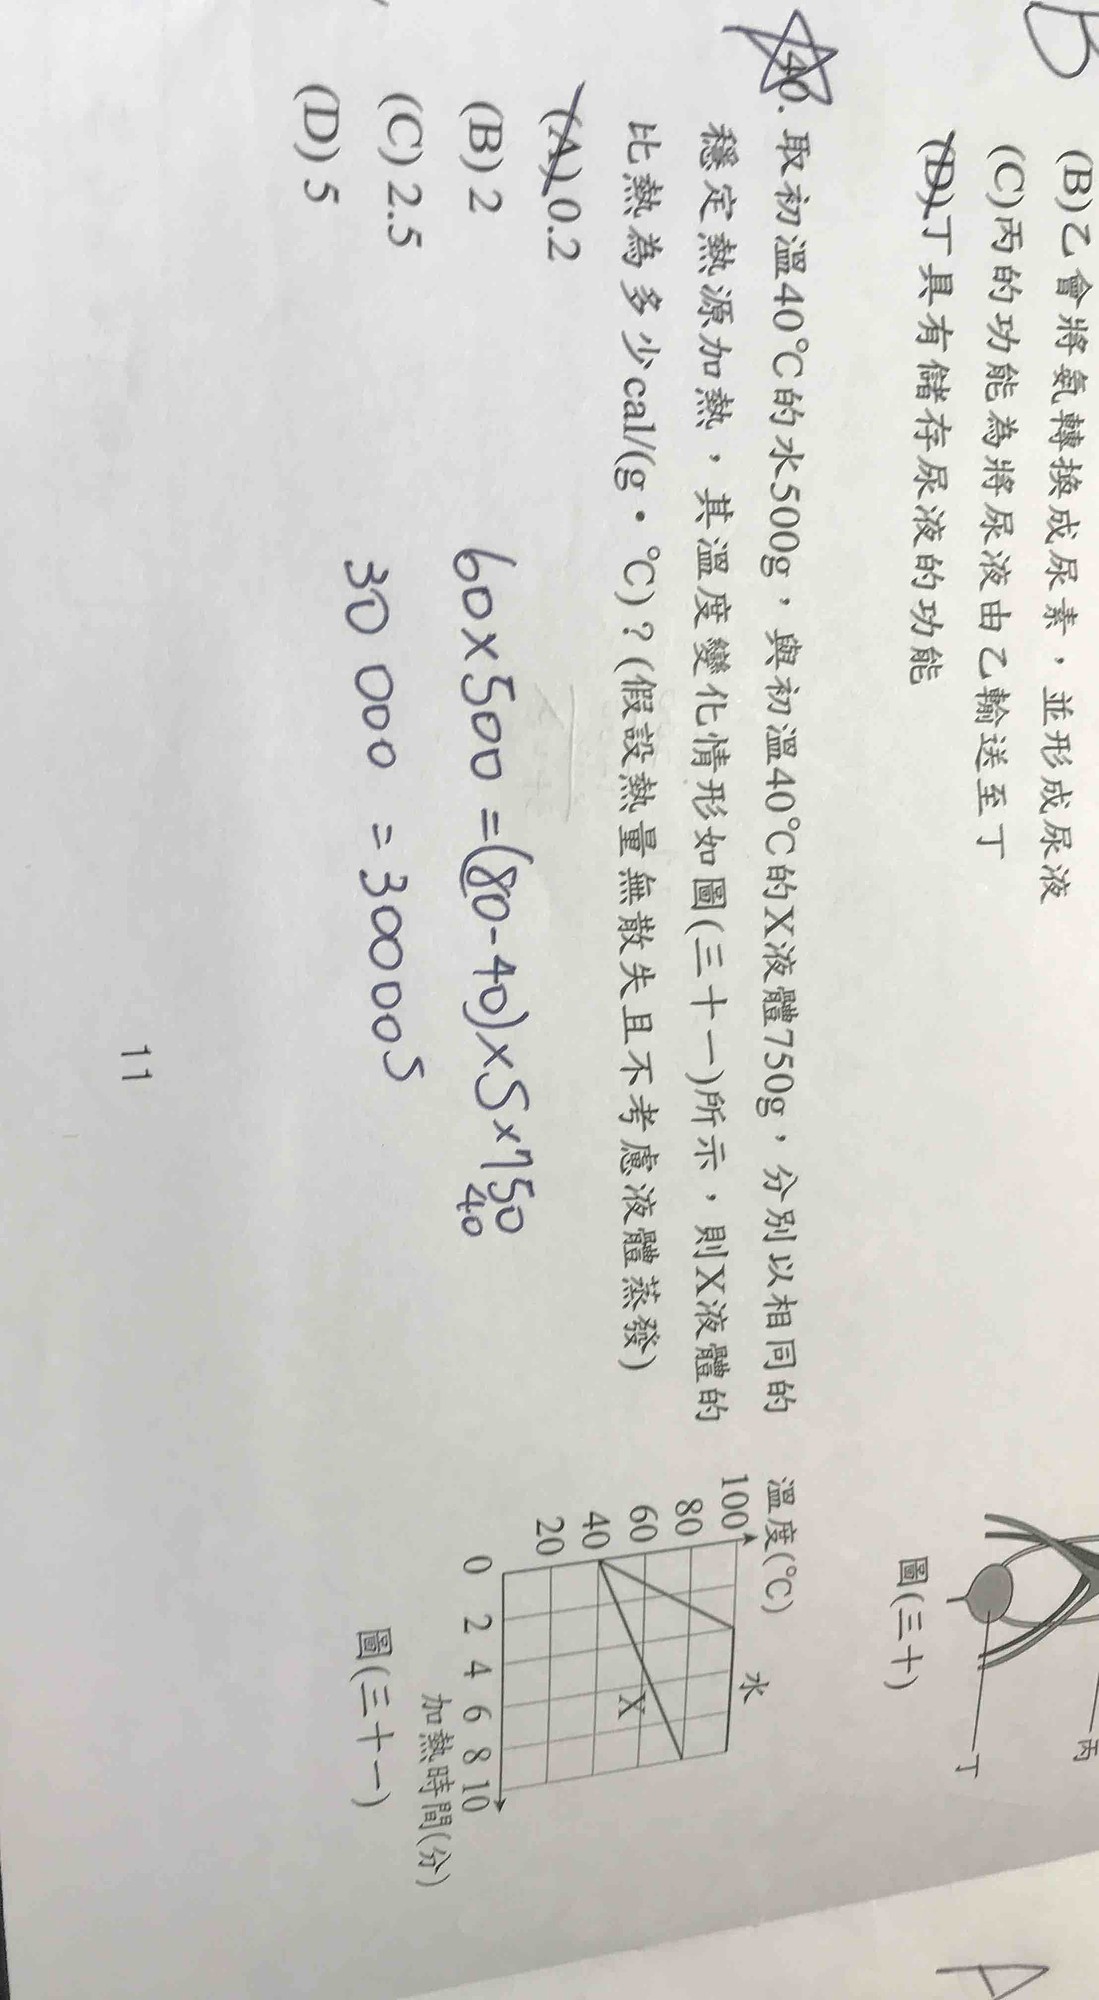 B
(B)乙會將氨轉換成尿素，並形成尿液
(C)丙的功能為將尿液由乙輸送至丁
(D)丁具有儲存尿液的功能
丙
丁
圖(三十)
A
40. 取初溫40℃的水500g，與初溫40℃的X液體750g，分別以相同的
穩定熱源加熱，其溫度變化情形如圖(三十一)所示，則X液體的
比熱為多少cal/(g·℃)？(假設熱量無散失且不考慮液體蒸發)
(A) 0.2
(B) 2
(C) 2.5
(D) 5
60×500=(80-40)×S×750
40
30 000 = 30000S
溫度(℃)
100
80
60
40
20
0 2 4 6 8 10
水
X
加熱時間(分)
圖(三十一)
11